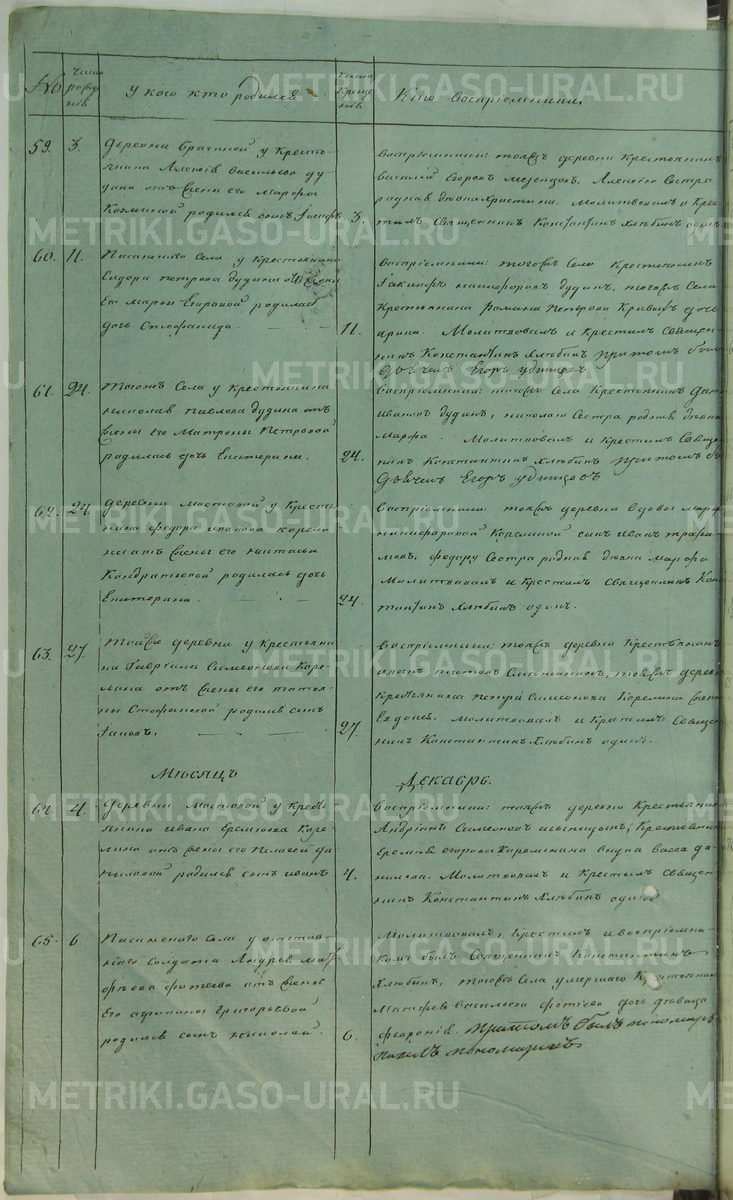 №
Число рожденія
У кого кто родился
Число крещенія
Кто воспріемники
59. 3.
деревни Брагиной у Кресть-
янина Алексѣя Васильева Ду
дина отъ жены его Марфы
Козминой родился сынъ Іосифъ
3.
Воспріемники: тоежъ деревни Крестьянинъ
Василей Егоровъ Алексѣю Сестра
родная дѣвка Христина. Молитвовалъ и Крес
тилъ Священникъ Константинъ Хлюбинъ одинъ
60. 11.
Писанскаго Села у Крестьянина
Сидора Петрова Дудина отъ жены
его Марьи Егоровой родилась
дочь Стефанида.
11.
Воспріемники: тогожъ Села Крестьянинъ
Никифоровъ Дудинъ, тогожъ Села
Крестьянина Романа Петрова дочь
Ирина. Молитвовалъ и Крестилъ Священ-
никъ Константинъ Хлюбинъ притомъ былъ
Дьячекъ Егоръ Удинцовъ
61. 24.
Тогожъ Села у Крестьянина
Николая Павлова Дудина отъ
жены его Матроны Петровой
родилась дочь Екатерина.
24.
Воспріемники: тогожъ Села Крестьянинъ
Ивановъ Дудинъ, Николаю Сестра родная дѣвка
Марфа. Молитвовалъ и Крестилъ Священ
никъ Константинъ Хлюбинъ притомъ бы
Дьячекъ Егоръ Удинцовъ
62. 24.
деревни Мостовой у Кресть
янина Федора Иванова Карели
на отъ жены его Настасьи
Кондратьевой родилась дочь
Екатерина.
24.
Воспріемники: тоежъ деревни вдовы
Никифоровой Карелиной сынъ Иванъ Трофи
мовъ, Федору Сестра родная дѣвка Марфа
Молитвовалъ и Крестилъ Священникъ Конс
тантинъ Хлюбинъ одинъ.
63. 27.
Тойже деревни у Крестьяни
на Гавріила Симеонова Каре-
лина отъ жены его Татья-
ны Стефановой родился сынъ
Іаковъ.
27.
Воспріемники: тоежъ деревни Крестьянинъ
тоежъ дерев
Крестьянина Петра Симеонова Карелина жена
Евдокея. Молитвовалъ и Крестилъ Священ
никъ Константинъ Хлюбинъ одинъ.
Мѣсяцъ Декабрь.
64. 4.
деревни Мостовой у Кресть
янина Ивана Еремѣева Каре-
лина отъ жены его Пелагеи Да
ниловой родился сынъ Иванъ
4.
Воспріемники: тоежъ деревни Крестьянинъ
Андріанъ Симеоновъ Крестьянина
Еремѣя Егорова Карелина
Молитвовалъ и Крестилъ Священ
никъ Константинъ Хлюбинъ одинъ
65. 6.
Писанскаго Села у отстав-
наго Солдата Андрея Мат
фѣева Фотеева отъ жены
его Агрипины Григорьевой
родился сынъ Николай.
6.
Молитвовалъ, Крестилъ и воспріемни
комъ былъ Священникъ Константинъ
Хлюбинъ, тогожъ Села умершаго Крестьянина
Матфѣя Фотѣева дочь дѣвица
Февронія. Притомъ былъ пономарь
Пономаревъ
METRIKI.GASO-URAL.RU